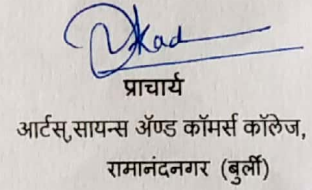 प्राचार्य
आर्टस्,सायन्स ॲण्ड कॉमर्स कॉलेज,
रामानंदनगर (बुर्ली)